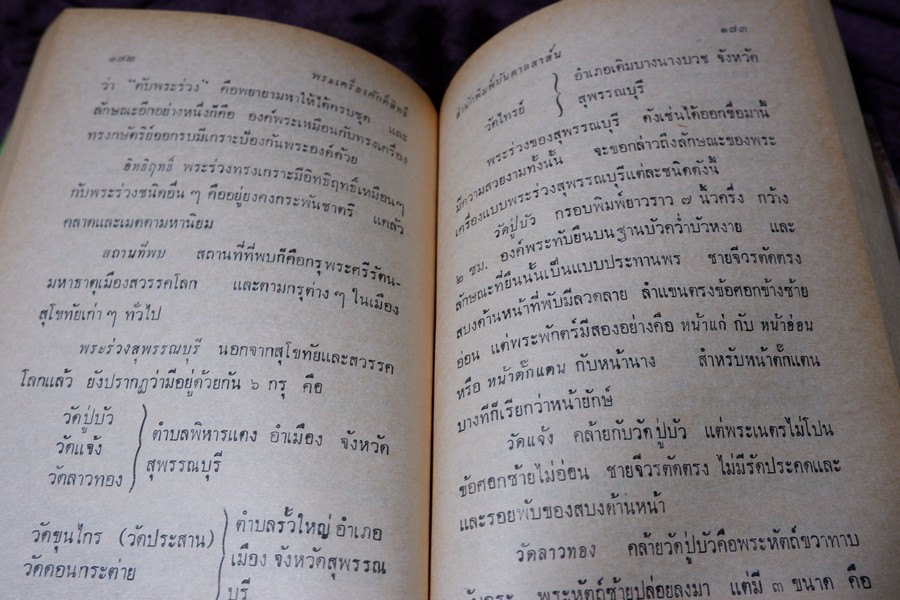 ๑๘๒
พระเครื่องศักดิ์สิทธิ์
ว่า "ตับพระร่วง" คือพยายามหาให้ได้ครบชุด และ
ลักษณะอีกอย่างหนึ่งก็คือ องค์พระเหมือนกับทรงเครื่อง
ทรงกษัตริย์ออกรบมีเกราะป้องกันพระองค์ด้วย
อิทธิฤทธิ์ พระร่วงทรงเกราะมีอิทธิฤทธิ์เหมือนๆ
กับพระร่วงชนิดอื่น ๆ คืออยู่ยงคงกระพันชาตรี แคล้ว
คลาดและเมตตามหานิยม
สถานที่พบ สถานที่ที่พบก็คือกรุพระศรีรัตน-
มหาธาตุเมืองสวรรคโลก และตามกรุต่าง ๆ ในเมือง
สุโขทัยเก่า ๆ ทั่วไป
พระร่วงสุพรรณบุรี นอกจากสุโขทัยและสวรรค
โลกแล้ว ยังปรากฏว่ามีอยู่ด้วยกัน ๖ กรุ คือ
วัดปู่บัว
วัดแจ้ง
วัดลาวทอง
ตำบลพิหารแดง อำเมือง จังหวัด
สุพรรณบุรี
วัดขุนไกร (วัดประสาน)
วัดดอนกระต่าย
ตำบลรั้วใหญ่ อำเภอ
เมือง จังหวัดสุพรรณ
บุรี
๑๘๓
สำนักพิมพ์บันดาลสาส์น
วัดไทรย์
อำเภอเดิมบางนางบวช จังหวัด
สุพรรณบุรี
พระร่วงของสุพรรณบุรี ดังเช่นได้ออกชื่อมานี้
มีความสวยงามทั้งนั้น จะขอกล่าวถึงลักษณะของพระ
เครื่องแบบพระร่วงสุพรรณบุรีแต่ละชนิดดังนี้
วัดปู่บัว กรอบพิมพ์ยาวราว ๗ นิ้วครึ่ง กว้าง
๒ ซม. องค์พระทับยืนบนฐานบัวคว่ำบัวหงาย และ
ลักษณะที่ยืนนั้นเป็นแบบประทานพร ชายจีวรตัดตรง
สบงด้านหน้าที่พับมีลวดลาย ลำแขนตรงข้อศอกข้างซ้าย
อ่อน แต่พระพักตร์มีสองอย่างคือ หน้าแก่ กับ หน้าอ่อน
หรือ หน้าตั๊กแตน กับหน้านาง สำหรับหน้าตั๊กแตน
บางทีก็เรียกว่าหน้ายักษ์
วัดแจ้ง คล้ายกับวัดปู่บัว แต่พระเนตรไม่โปน
ข้อศอกซ้ายไม่อ่อน ชายจีวรตัดตรง ไม่มีรัดประคดและ
และรอยพับของสบงด้านหน้า
วัดลาวทอง คล้ายวัดปู่บัวคือพระหัตถ์ขวาทาบ
พระหัตถ์ซ้ายปล่อยลงมา แต่มี ๓ ขนาด คือ